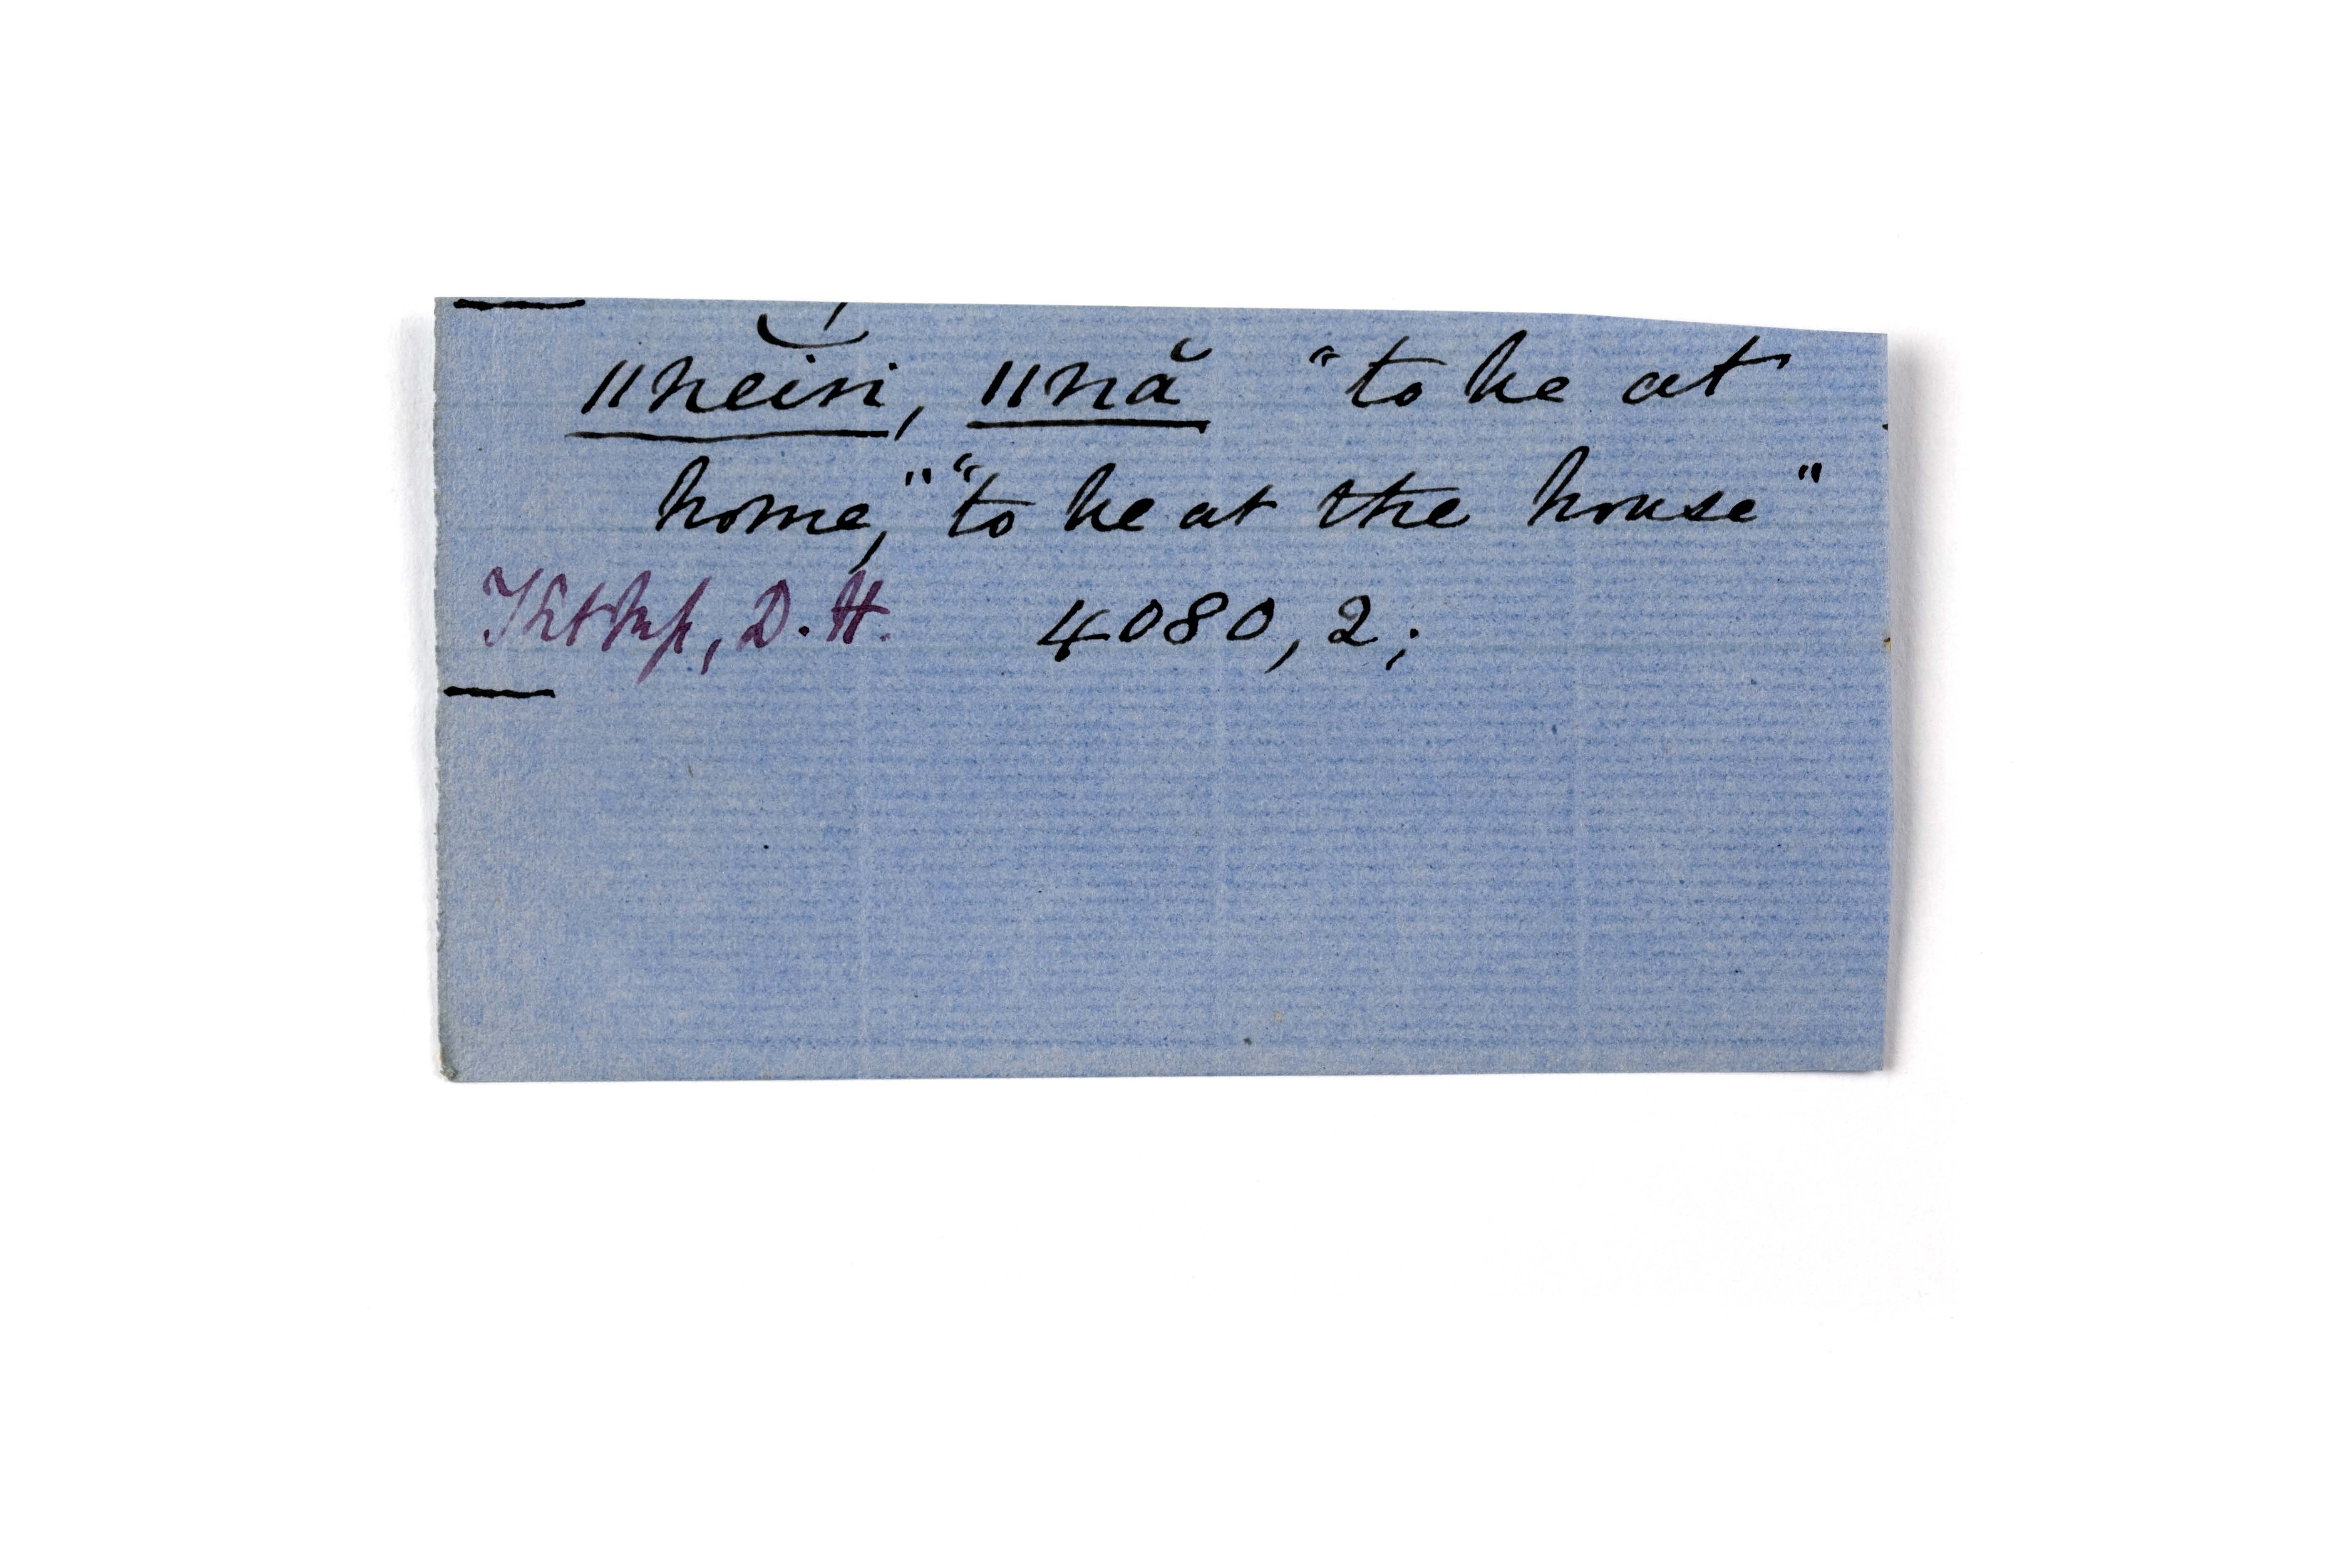 ǁnĕisi, ǁnă "to be at
home," "to be at the house"
D. H. 4080, 2;